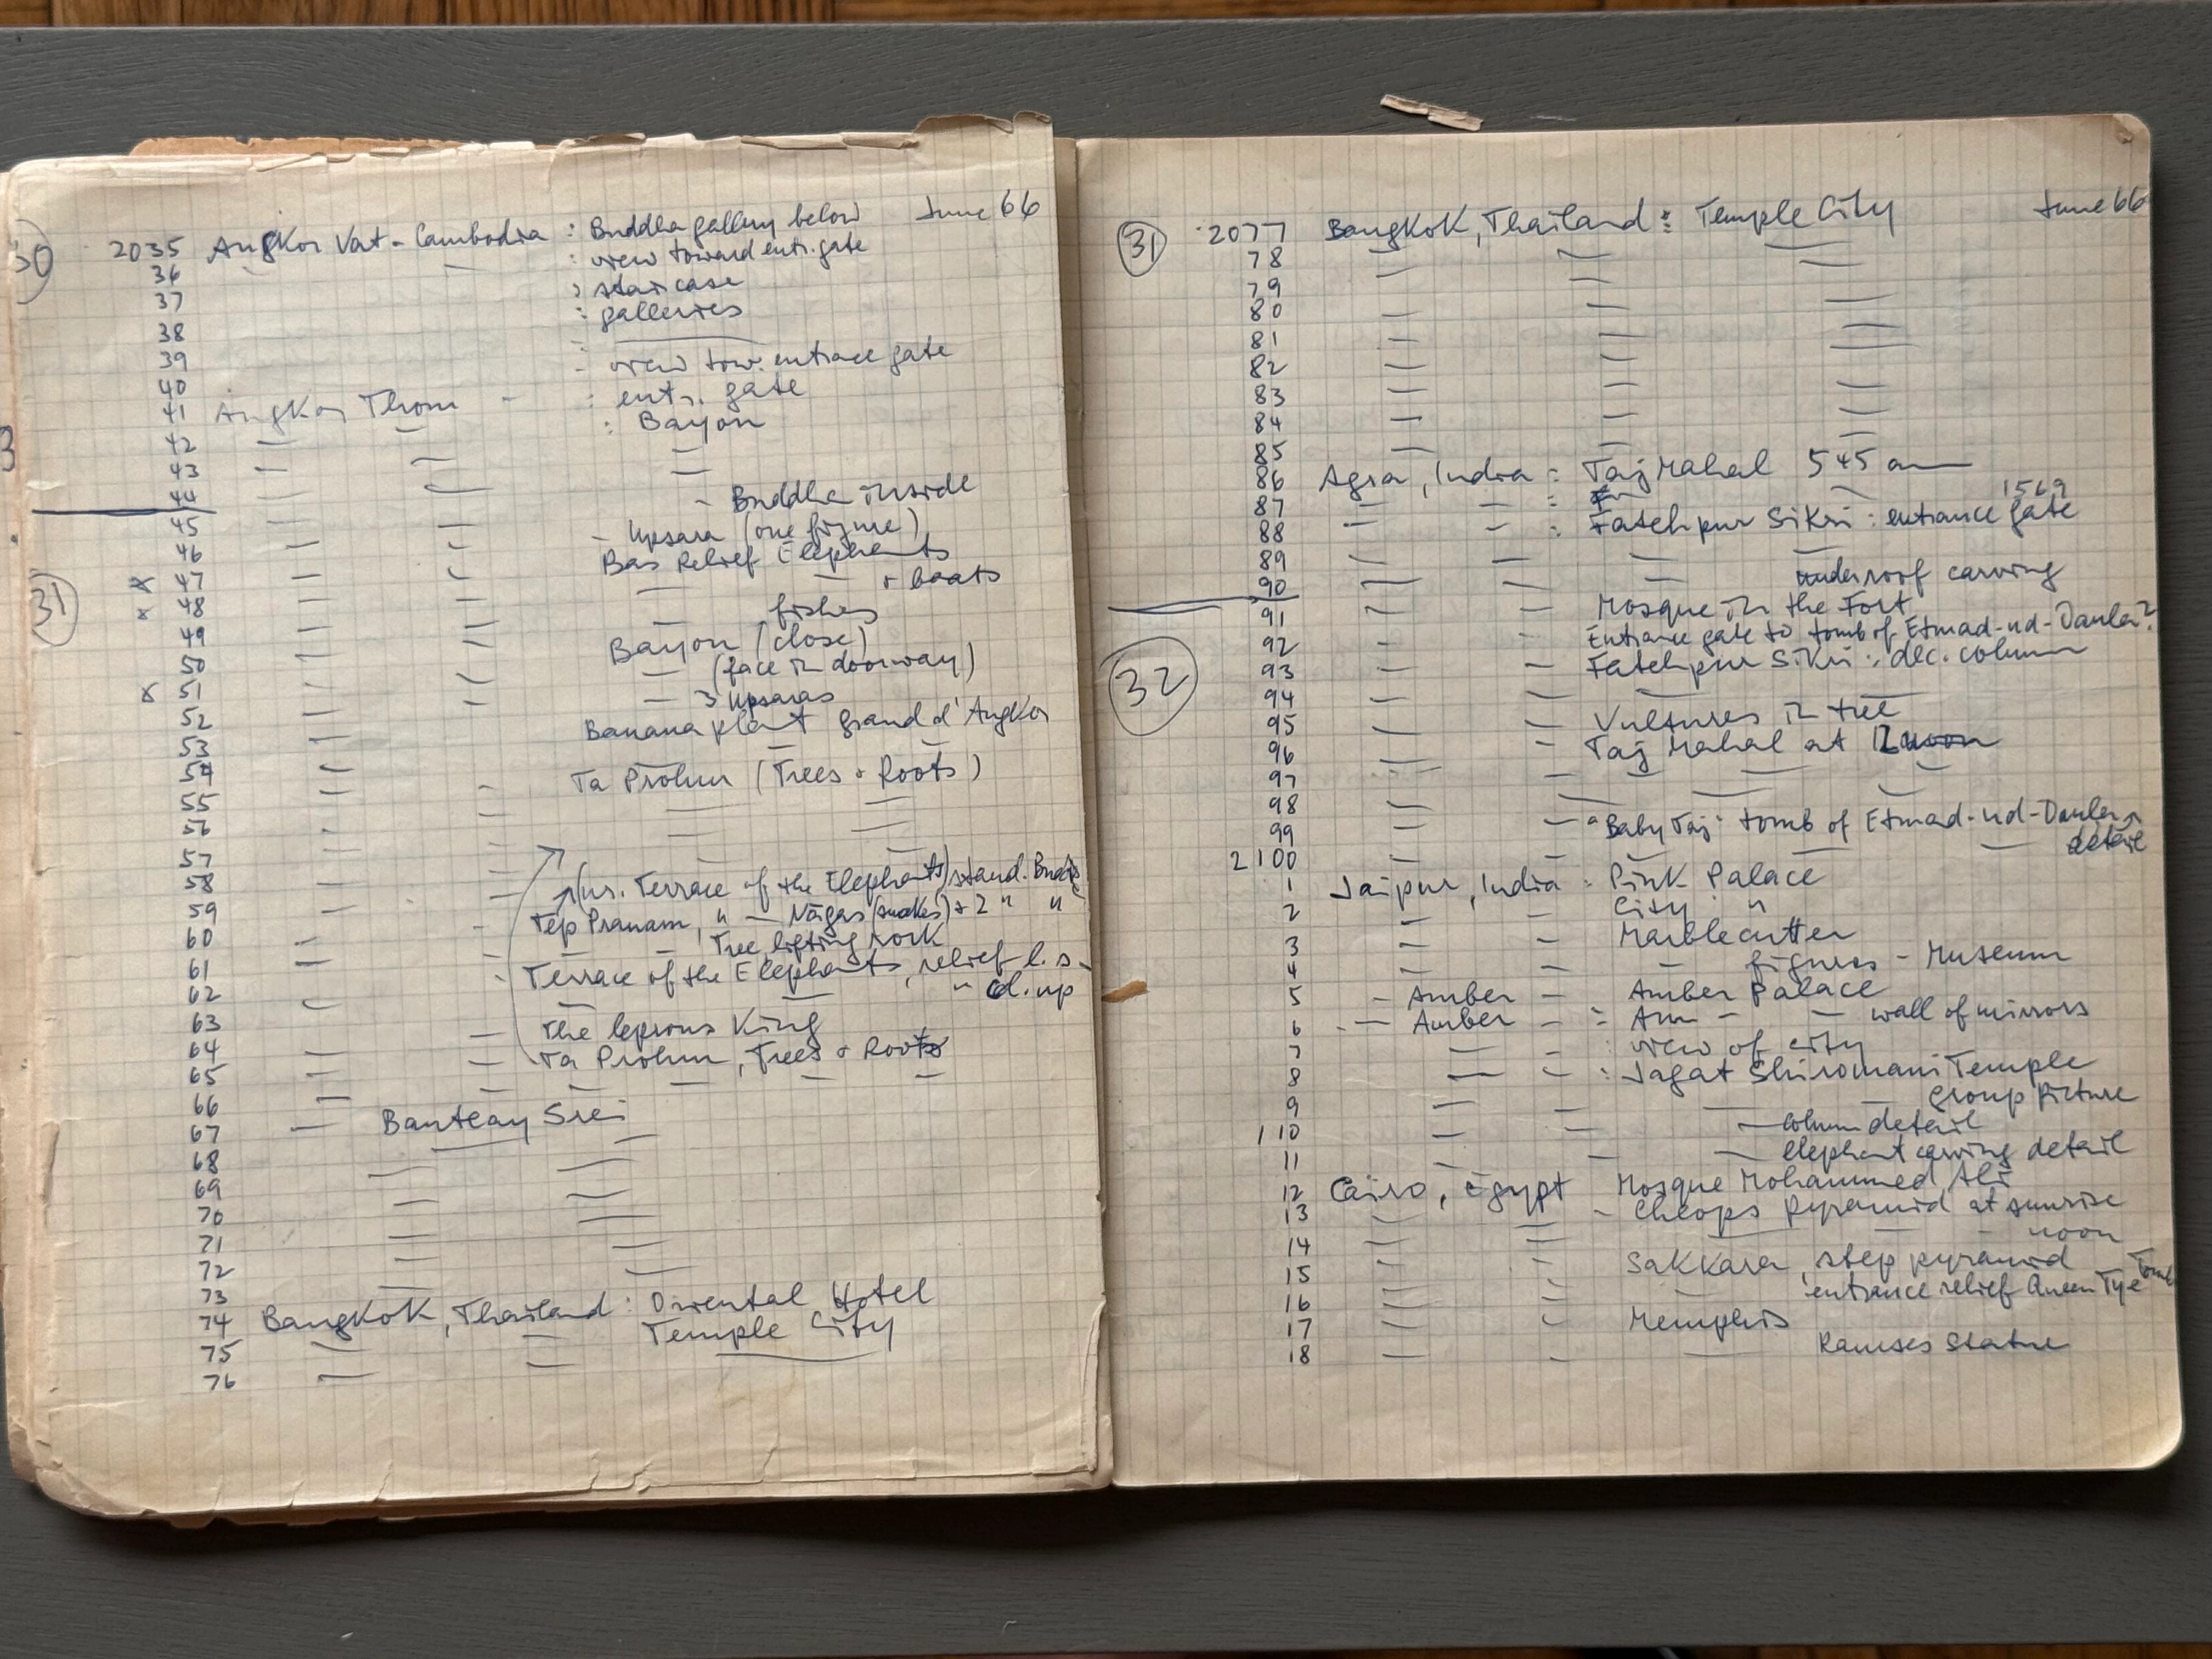 30
June 66
2035 Angkor Vat - Cambodia : Buddha gallery below
36 : view toward entr. gate
37 : staircase
38 : galleries
39
40 - view tow. entrace gate
41 Angkor Thom - : entr. gate
42 : Bayon
43
44
45 - Buddha inside
46 - Upsara (one figure)
x 47 Bas Relief Elephants
31
x 48 + boats
49 fishes
50 Bayon (close)
x 51 (face in doorway)
52 3 Upsaras
53 Banana plant grand d'Angkor
54
55 Ta Prohm (Trees + Roots)
56
57
58
59 (nr. Terrace of the Elephants) stand. Buddha
60 Tep Pranam, " — Nāgas (snakes) + 2 " "
61 Tree lifting rock
62 Terrace of the Elephants, relief l.s.
63 " cl. up
64 The leprous King
65 Ta Prohm, Trees + Roots
66
67 Banteay Srei
68
69
70
71
72
73
74 Bangkok, Thailand : Oriental Hotel
75 Temple City
76
31
June 66
2077 Bangkok, Thailand : Temple City
78
79
80
81
82
83
84
85
86 Agra, India : Taj Mahal 545 am
87
1569
88 : Fatehpur Sikri : entrance gate
89
90 underroof carving
91 Mosque in the Fort
92 Entrance gate to tomb of Etmad-ud-Daula?
32
93 Fatehpur Sikri : dec. column
94
95 Vultures in tree
96 - Taj Mahal at 12 noon
97
98
99 - "Baby Taj" tomb of Etmad-ud-Daula
2100 detail
1 Jaipur, India : Pink Palace
2 City "
3 Marblecutter
4 figures - Museum
5 - Amber - Amber Palace
6 - Amber - : Am - wall of mirrors
7 : view of city
8 : Jagat Shiromani Temple
9 group picture
110 column detail
11 Elephant carving detail
12 Cairo, Egypt Mosque Mohammed Ali
13 - Cheops pyramid at sunrise
14 noon
15 Sakkara, step pyramid
16 entrance relief Queen Tye Tomb
17 Memphis
18 Ramses Statue